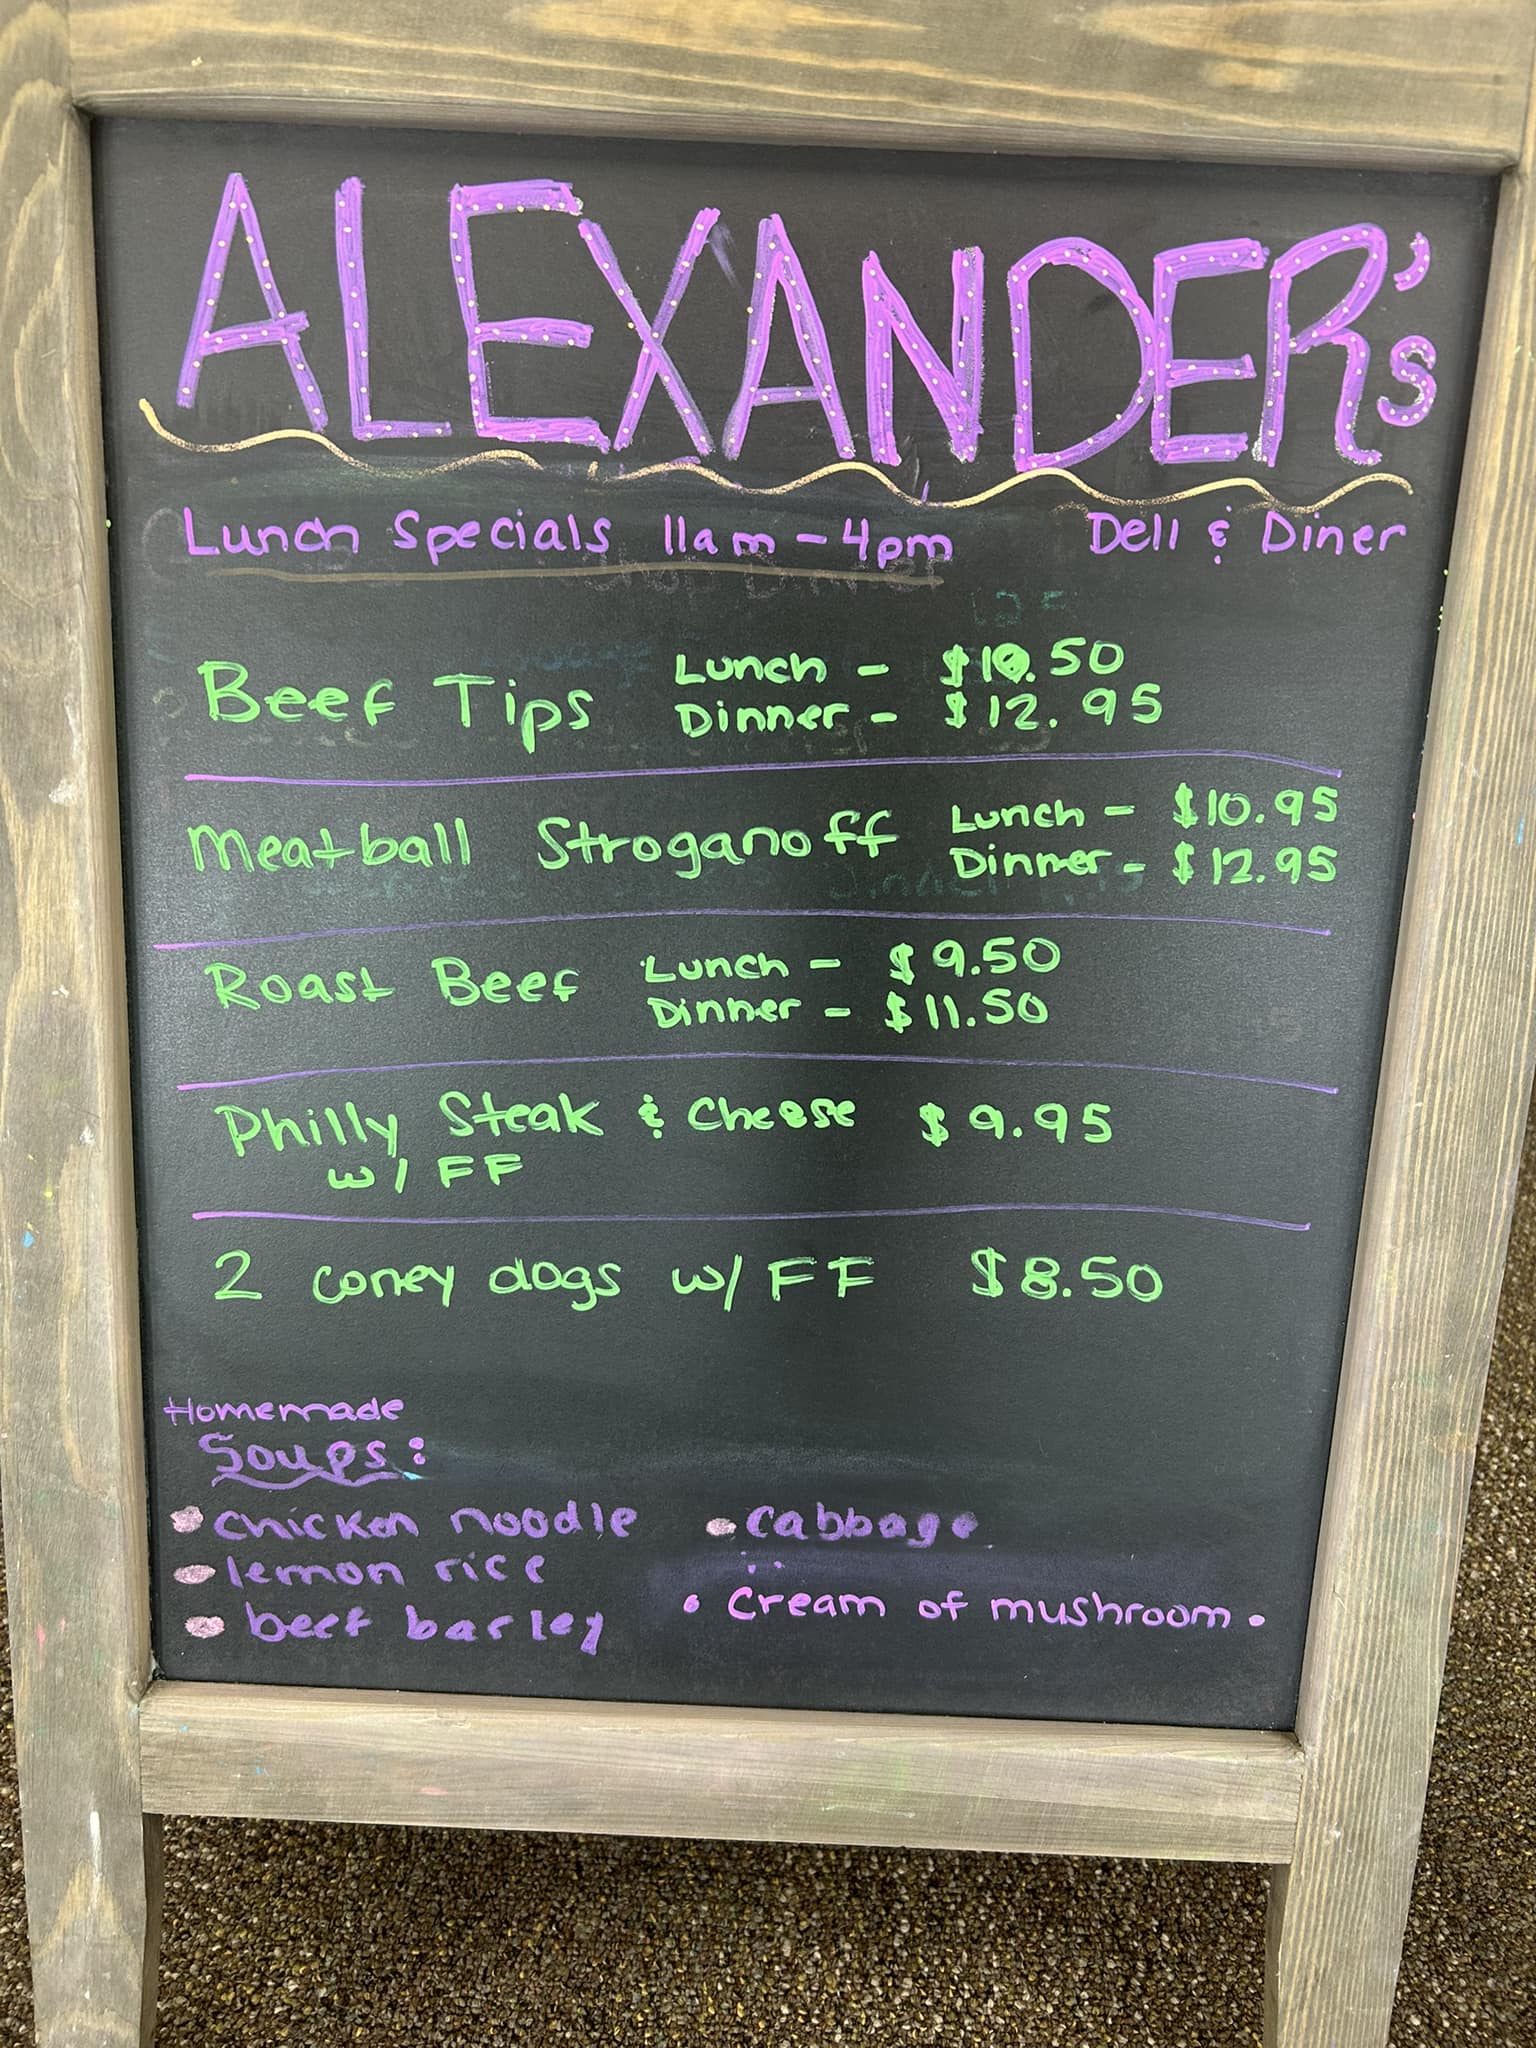 ALEXANDER's
Lunch Specials 11am - 4pm Deli & Diner
Beef Tips Lunch - $10.50
Dinner - $12.95
Meatball Stroganoff Lunch - $10.95
Dinner - $12.95
Roast Beef Lunch - $9.50
Dinner - $11.50
Philly Steak & Cheese $9.95
w/ FF
2 coney dogs w/ FF $8.50
Homemade
Soups:
• chicken noodle • cabbage
• lemon rice
• Cream of mushroom •
• beef barley